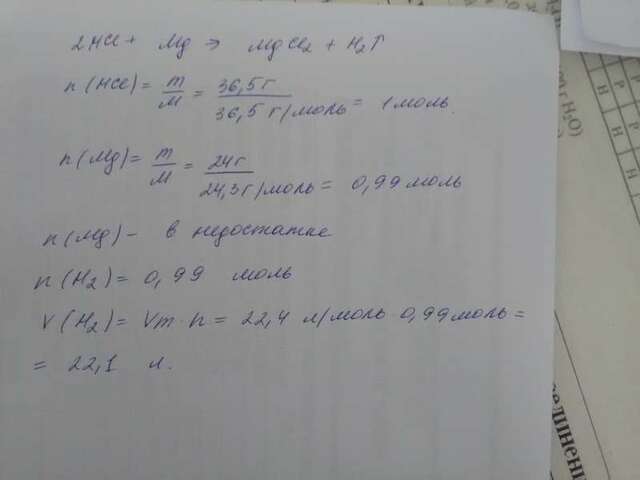 2HCl + Mg → MgCl₂ + H₂↑
n(HCl) = m/M = 36,5г / 36,5г/моль = 1моль.
n(Mg) = m/M = 24г / 24,3г/моль = 0,99моль
n(Mg) - в недостатке
n(H₂) = 0,99 моль
V(H₂) = Vm·n = 22,4 л/моль · 0,99моль =
= 22,1 л.
H₂O)
единнени